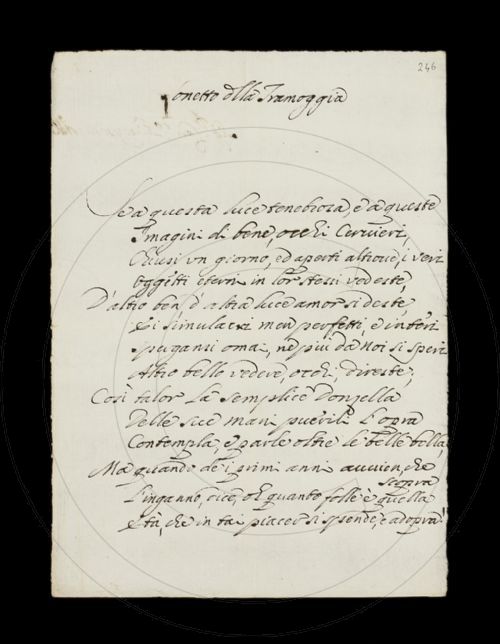 246
Sonetto della Tramoggia
Se a questa luce tenebrosa, e a queste
Imagini di bene, occhi Cervieri,
Chiusi un giorno, ed aperti altrove, i veri
Oggetti eterni in lor stessi vedeste,
D'altro ben, d'altra luce amor si deste
E i simulacri men perfetti, e interi
spregiansi omai, né più da noi si speri
Altro bello vedere, occhi, direste,
Così talor la semplice Donzella
Delle sue mani puerili l'opra
Contempla, e parle oltre le belle bella,
Ma quando de i primi anni avvien, che
scopra
L'inganno, dice, oh quanto folle è quella
Età, che in tai piacer si spende, e adopra!